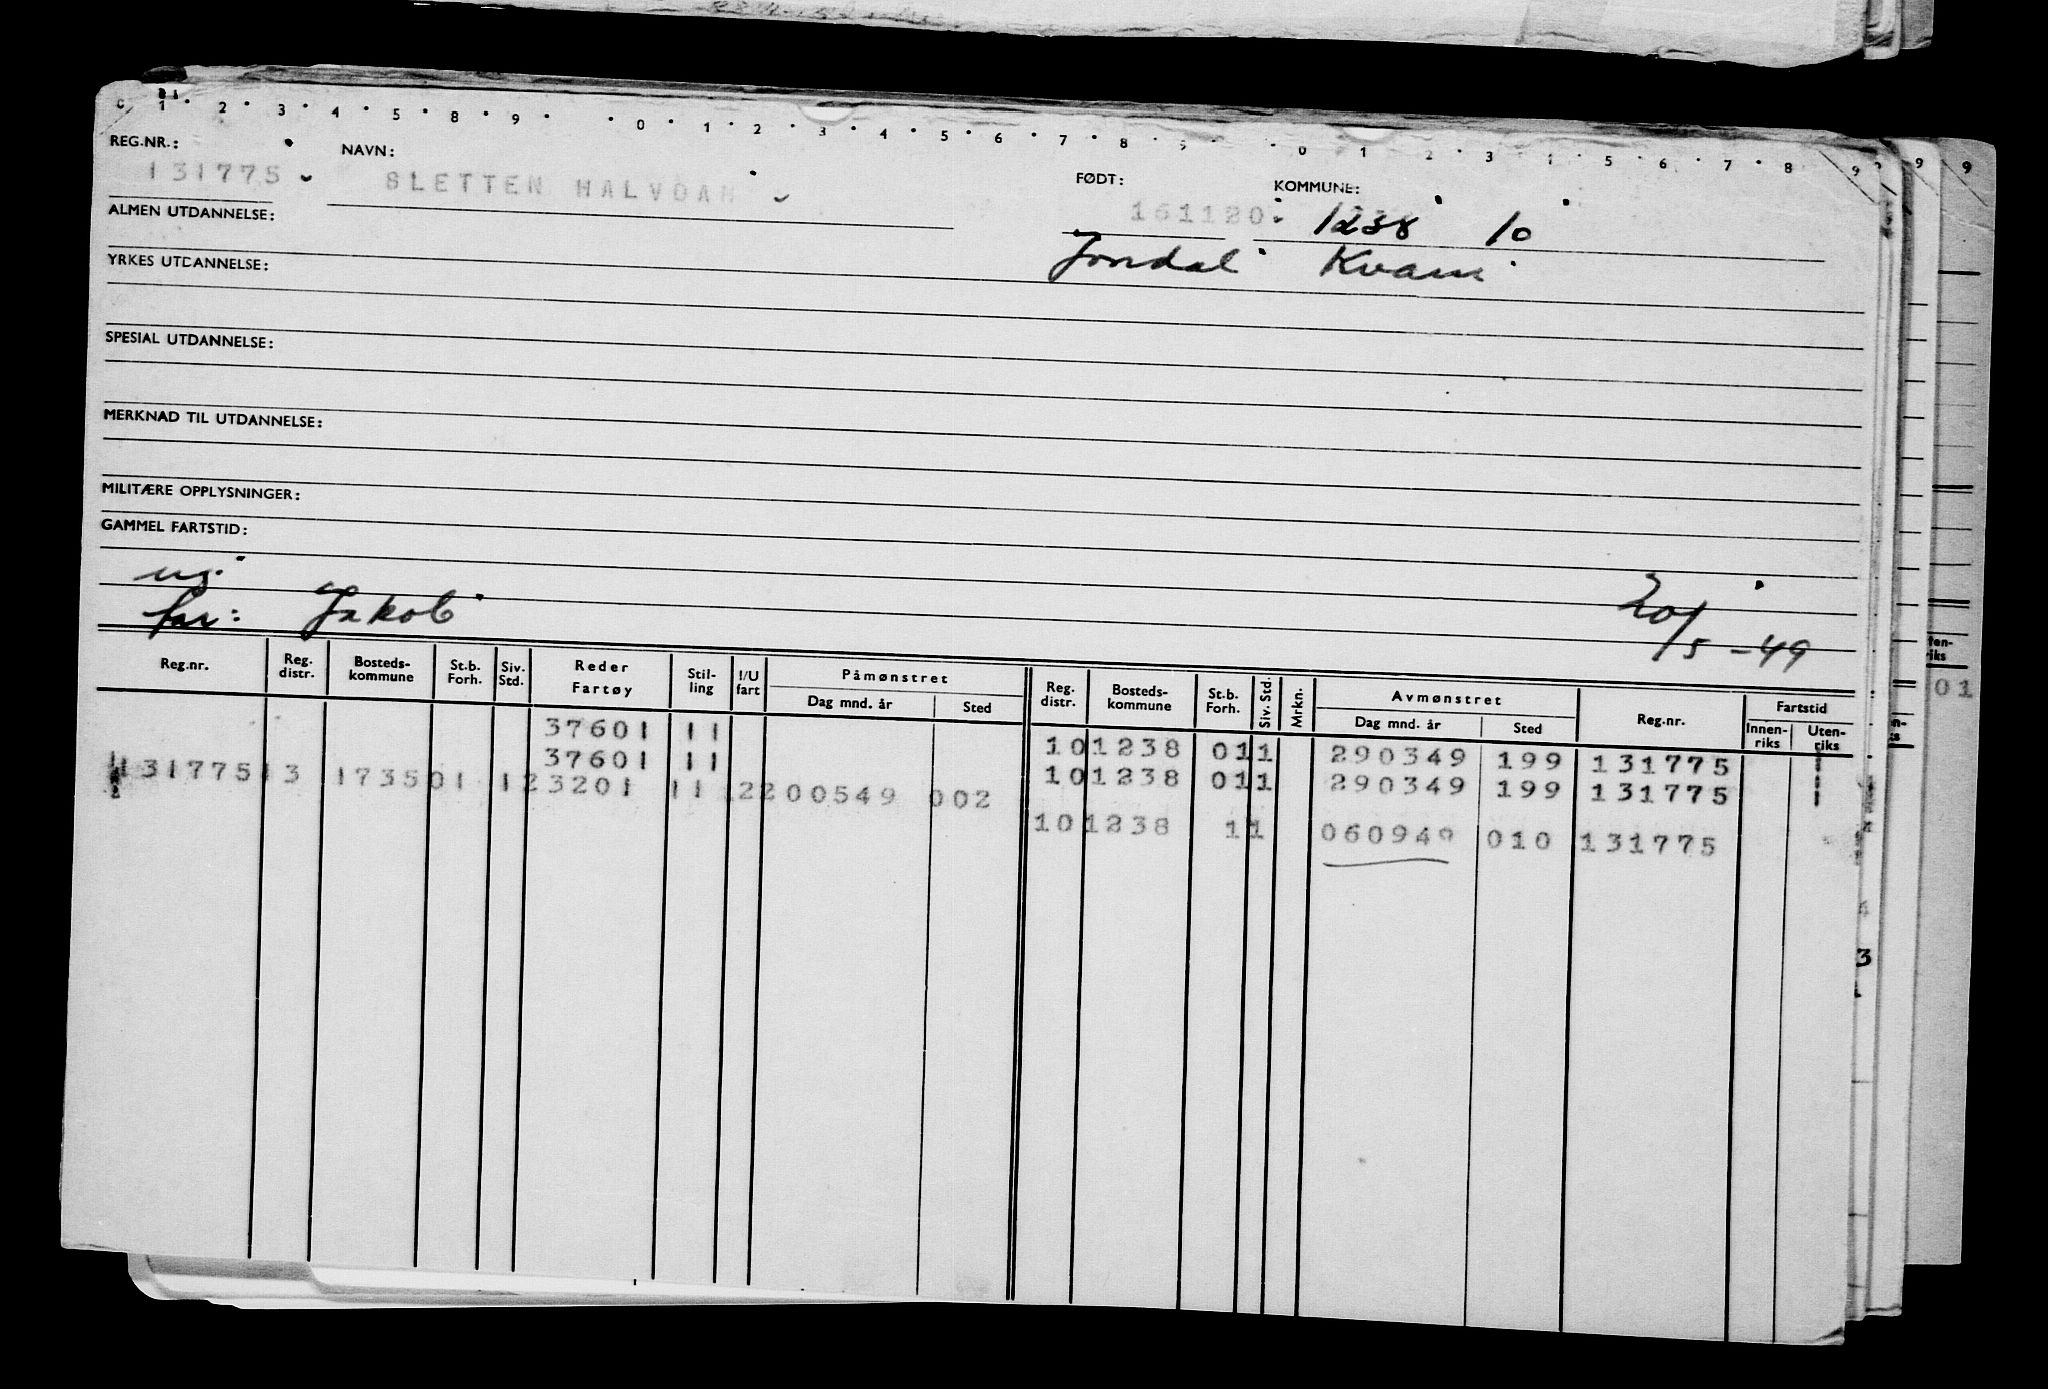 REG.NR.: NAVN: FØDT: KOMMUNE:
131775 SLETTEN HALVDAN 161120 1238 10
ALMEN UTDANNELSE:
Jondal Kvam
YRKES UTDANNELSE:
SPESIAL UTDANNELSE:
MERKNAD TIL UTDANNELSE:
MILITÆRE OPPLYSNINGER:
GAMMEL FARTSTID:
ug.
far: Jakob 20/5-49
Reg.nr. Reg. distr. Bosteds-kommune St.b. Forh. Siv. Std. Reder Fartøy Stil-ling I/U fart Påmønstret Dag mnd. år Sted Reg. distr. Bosteds-kommune St.b. Forh. Siv. Std. Mrkn. Avmønstret Dag mnd. år Sted Reg.nr. Fartstid Innen-riks Uten-riks
37601 11 10 1238 01 1 290349 199 131775 1
37601 11 10 1238 01 1 290349 199 131775 1
131775 13 1735 01 1 23201 11 2 200549 002
10 1238 1 1 060949 010 131775